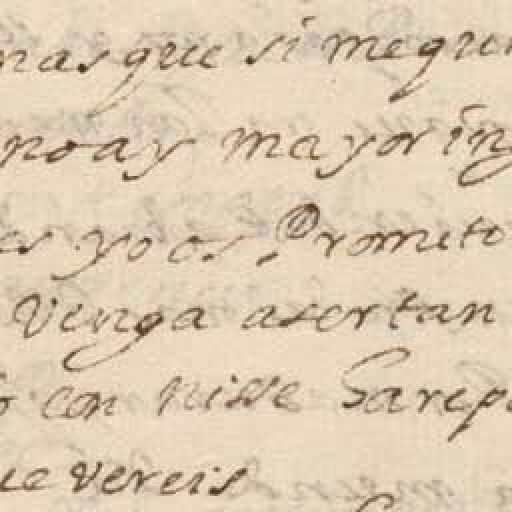 mas que si me que
no ay mayor ing
es yo os Prometo
Venga a ser tan
con nisse Garepa
ue vereis